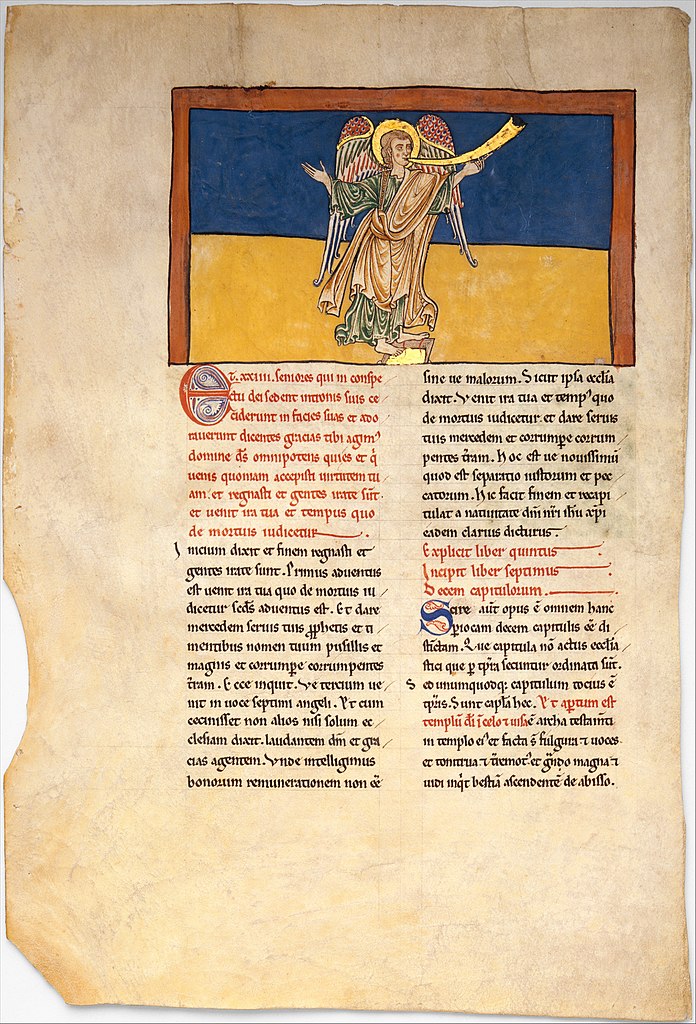 Et. xxiiii. seniores qui in conspe
ctu dei sedent in tronis suis ce
ciderunt in facies suas et ado
raverunt dicentes gracias tibi agimꝰ
domine dꝰ omnipotens qui es et q̇
venis quoniam accepisti virtutem tu
am. et regnasti et gentes irate sūt.
et venit ira tua et tempus quo
de mortuis iudicetur
Inicium dixit et finem regnasti et
gentes irate sunt. Primus adventus
est venit ira tua quo de mortuis iu
dicetur scdꝰ adventus est. Et dare
mercedem servis tuis ꝓphetis et ti
mentibus nomen tuum pusillis et
magnis et corrumpe corrumpentes
t̄ram. Ecce inquit. Ve tercium ve
nit in voce septimi angeli. Et cum
cecinisset non alios nisi solum ec
clesiam dixit. laudantem dm̄ et gra
cias agentem. Vnde intelligimus
bonorum remunerationem non ēē
sine ve malorum. Sicut ipsa ecclīa
dixit. Venit ira tua et tempꝰ quo
de mortuis iudicetur. et dare servis
tuis mercedem et corrumpe corrum
pentes t̄ram. Hoc est ve novissimū
quod est separatio iustorum et pec
catorum. Hic facit finem et recapi
tulat a nativitate dm̄ nr̄i ih̄u xp̄i
eadem clarius dicturus.
Explicit liber quintus
Incipit liber septimus
Decem capitulorum.
Scire aūt opus ē omnem hanc
ꝑiocam decem capitulis eē di
stīctam. Que capitula nō actus ecclīa
stici que ꝑ tp̄ra secuntur ordinata sūt.
Sed unumquodq; capitulum tocius ē
tp̄ris. Sunt capl̄a hec. Et aꝑtum est
templū dī ī celo ⁊ visa ē archa testam̄ti
in templo eiꝰ et facta s̄ fulgura ⁊ voces
et tonitrua ⁊ t̄remotꝰ et g̊ndo magna ⁊
vidi inq̇t bestiā ascendentē de abisso.